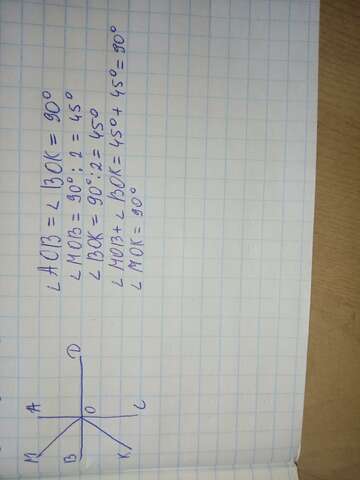 ∠AOB = ∠BOK = 90°
∠MOB = 90° : 2 = 45°
∠BOK = 90° : 2 = 45°
∠MOB + ∠BOK = 45° + 45° = 90°
∠MOK = 90°
M A
B O D
K C